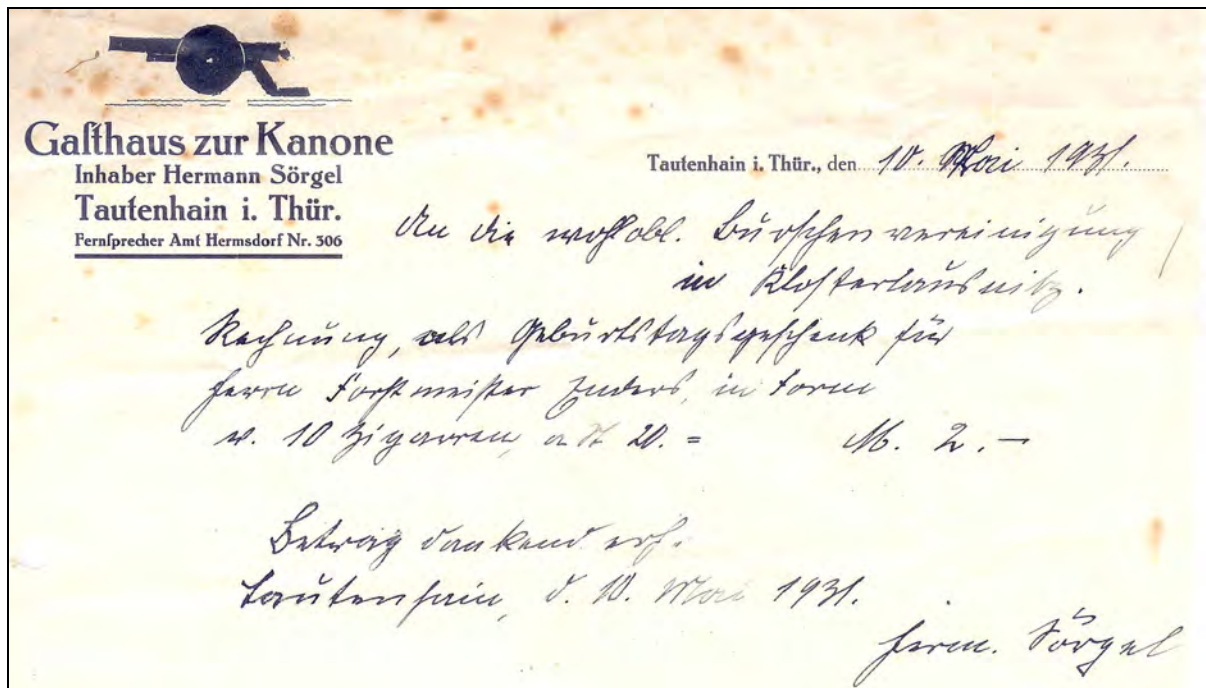 Gasthaus zur Kanone
Inhaber Hermann Sörgel
Tautenhain i. Thür.
Fernsprecher Amt Hermsdorf Nr. 306
Tautenhain i. Thür., den 10. Mai 1931.
An die wohllobl. Burschenvereinigung
in Klosterlausnitz.
Rechnung, als Geburtstagsgeschenk für
Herrn Forstmeister Enders, in Form
v. 10 Zigarren, a St 20. = M. 2.—
Betrag dankend erh.
Tautenhain, d. 10. Mai 1931.
Herm. Sörgel